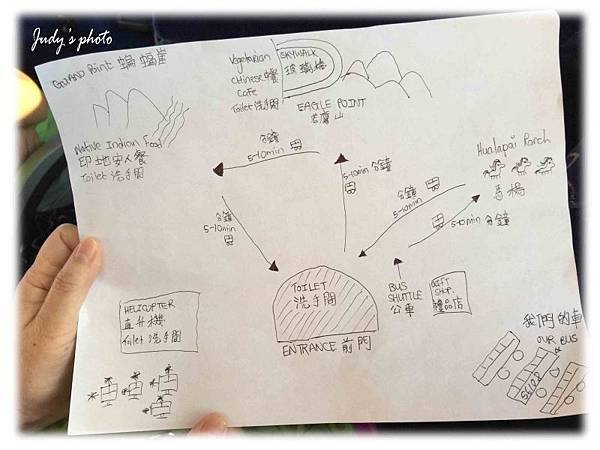 Judy's photo
GUANO Point 蝙蝠崖
Vegetarian
Chinese 餐
Cafe
Toilet 洗手間
SKYWALK
玻璃橋
EAGLE POINT
老鷹山
Native Indian Food
印地安人餐
Toilet 洗手間
Hualapai Ranch
馬場
分鐘
5-10min
5-10min 分鐘
分鐘
5-10min
5-10min 分鐘
分鐘
5-10min
HELICOPTER
直升機
Toilet 洗手間
TOILET
洗手間
ENTRANCE 前門
BUS
SHUTTLE
公車
GIFT
SHOP
禮品店
我們的車
OUR BUS